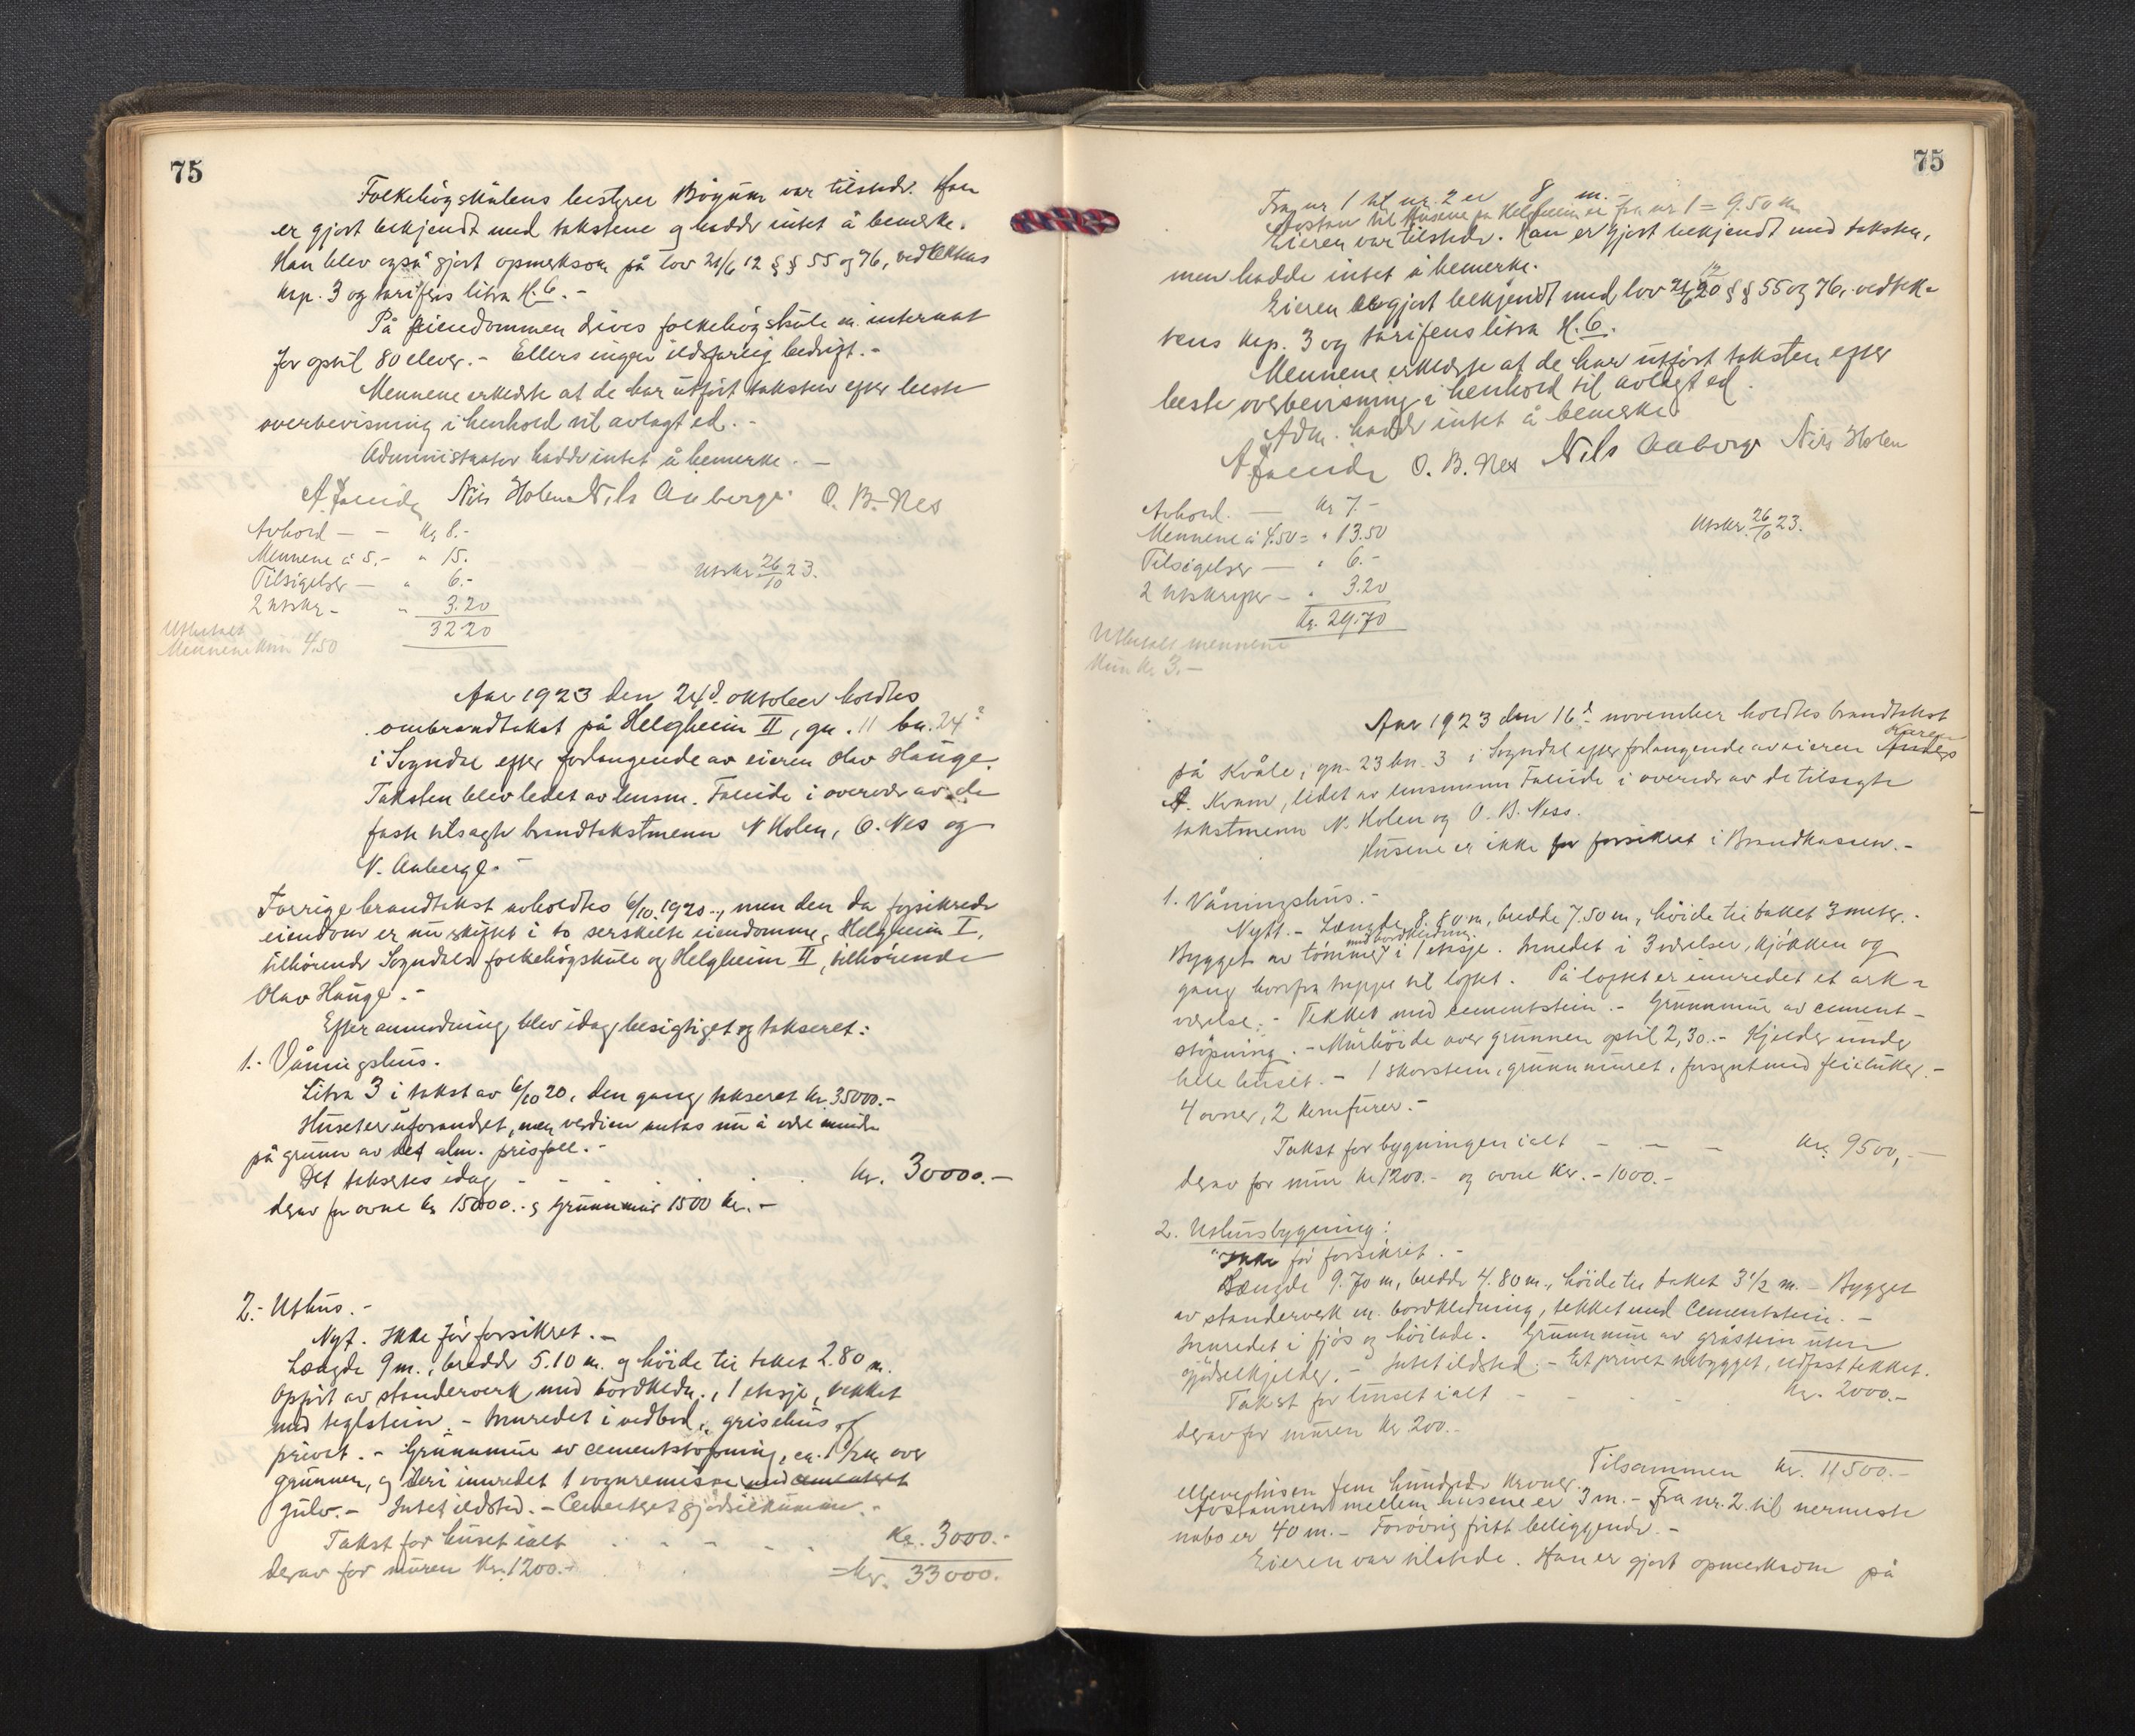 75
Folkehögskulens bestyrer Bögum var tilstede. Han
er gjort bekjendt med takstene og hadde intet å bemerke.
Han blev også gjort opmerksom på lov 21/6 12 §§ 55 og 76, vedtektens
kap. 3 og tarifens litra H.6. -
På eiendommen drives folkehögskule m. internat
for optil 80 elever. - Ellers ingen ildsfarlig bedrift. -
Mennene erklærte at de har utført taksten efter beste
overbevisning i henhold til avlagt ed. -
Administrator hadde intet å bemerke. -
A. Faleide Nils Holen Nils Aaberge. O. B. Nes
Avhold - - Kr 8.-
Mennene à 5,- " 15.
Tilsigelser - " 6.-
2 utskr - " 3.20
32.20
Utskr. 26/10 23.
Utbetalt
Mennene kun 4.50
Aar 1923 den 24d oktober holdtes
ombrandtakst på Helgheim II, gn. 11 bn. 24
i Sogndal efter forlangende av eieren Olav Hauge.
Taksten blev ledet av lensm. Faleide i overvær av de
fast tilsagte brandtakstmenn N Holen, O. Nes og
N. Aaberge. -
Forrige brandtakst avholdtes 6/10 1920., men den da forsikrede
eiendom er nu skiftet i to serskilte eiendomme, Helgheim I,
tilhörende Sogndals folkehögskule og Helgheim II, tilhörende
Olav Hauge. -
Efter anmodning blev idag besigtiget og takseret:
1.- Våningshus.
Litra 3 i takst av 6/10 20, den gang takseret kr. 35000.-
Huset er uforandret, men verdien antas nu å være mindre
på grunn av det alm. prisfall. -
Det takseres idag - - - - kr. 30000.-
derav for ovne kr 1500.- og grunnmur 1500 kr. -
2.- Uthus. -
Nytt. Ikke för forsikret. -
Længde 9 m., bredde 5.10 m. og höide til taket 2.80 m.
Opført av standerverk med bordkledn., 1 etasje, tekket
med teglstein. - Innredet i vedbod, grisehus og
privet. - Grunnmur av cementstöpning, ca. 1 1/2 m over
grunnen, og deri innredet 1 vognremisse med cementert
gulv. - Intet ildsted. - Cementert gjödselkum. -
Takst for huset ialt - - - Kr. 3000.-
derav for muren Kr. 1200.-
= Kr. 33000.
75
Fra nr. 1 til nr. 2 er 8 m. -
Avstan til Husene på Helgheim er fra nr 1 = 9.50 m
Eieren var tilstede. Han er gjort bekjendt med taksten,
men hadde intet å bemerke.
Eieren er gjort bekjendt med lov 21/6 12 §§ 55 og 76, vedtek-
tens kap. 3 og tarifens litra H.6.
Mennene erklærte at de har utført taksten efter
beste overbevisning i henhold til avlagt ed.
Adm. hadde intet å bemerke.
A. Faleide O. B. Nes Nils Aaberge Nils Holen
Avhold. - Kr 7.-
Mennene à 4.50 = " 13.50
Tilsigelser - " 6.-
2 utskrifter - " 3.20
Kr. 29.70
Utskr. 26/10 23.
Utbetalt mennene
kun kr. 3.-
Aar 1923 den 16d november holdtes brandtakst
på Kvåle, gn. 23 bn. 3 i Sogndal efter forlangende av eieren Anders Haren
A. Kvam, ledet av lensmann Faleide i overvær av de tilsagte
takstmenn N. Holen og O. B. Ness.
Husene er ikke för forsikret i Brandkassen. -
1. Våningshus. -
Nytt. - Længde 8.80 m, bredde 7.50 m, höide til taket 3 meter. -
Bygget av tömmer med bordkledning i 1 etasje. Innredet i 3 værelser, kjökken og
gang hvorfra trappe til loftet. På loftet er innredet et ark-
værelse. - Tekket med cementstein. - Grunnmur av cement-
stöpning. - Murhöide over grunnen optil 2,30. - Kjelder under
hele huset. - 1 skorstein, grunnmuret, forsynt med feieluker. -
4 ovner, 2 komfurer. -
Takst for bygningen ialt - - - Kr. 9500,-
derav for mur kr 1200.- og ovne Kr. - 1000.-
2. Uthusbygning:
Ikke för forsikret. -
Længde 9.70 m, bredde 4.80 m., höide til taket 3 1/2 m. - Bygget
av standerverk m. bordkledning, tekket med cementstein. -
Innredet i fjös og höilade. Grunnmur av gråstein uten
gjödselkjelder. - Intet ildsted. - Et privet nybygget, ildfast tekket.
Takst for huset ialt - - - Kr. 2000.-
derav for muren Kr. 200.-
Tilsammen Kr. 11500.-
ellevetusen fem hundrede kroner.
Avstannen mellem husene er 3 m. - Fra nr. 2 til nermeste
nabo er 40 m. - Forövrig fritt beliggende. -
Eieren var tilstede. Han er gjort opmerksom på